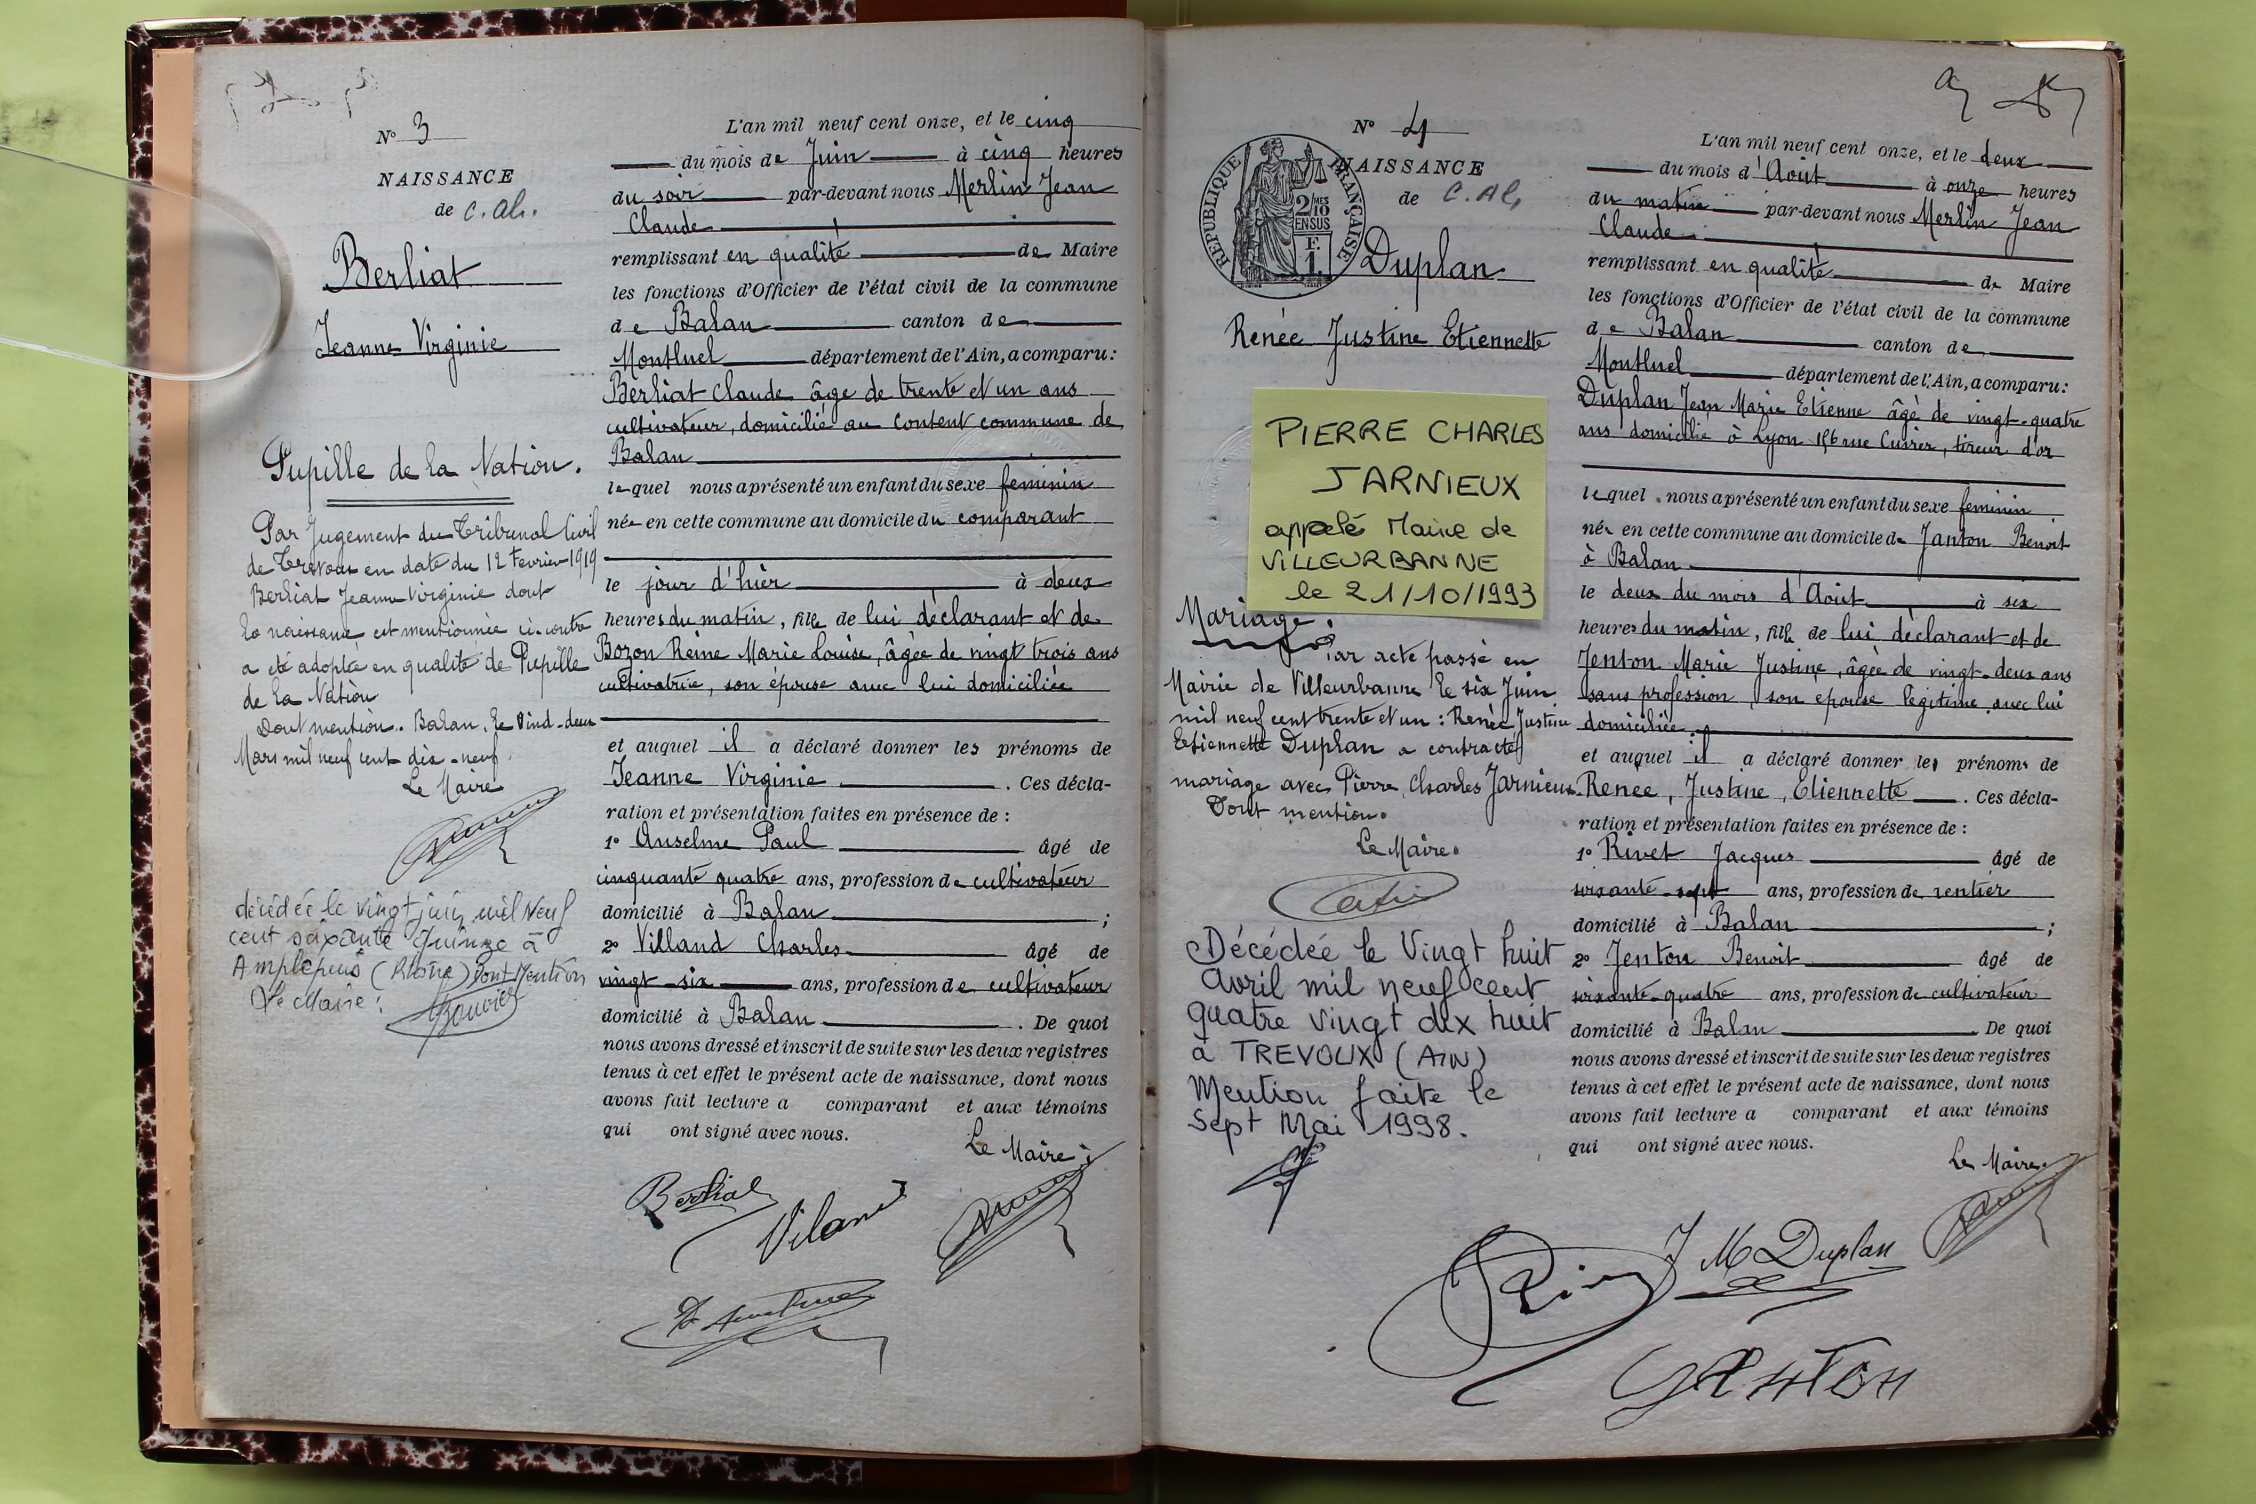 N° 3
NAISSANCE
de C. Al.
Berliat
Jeanne Virginie
Pupille de la Nation.
Par Jugement du Tribunal Civil
de Trévoux en date du 12 Fevrier 1919
Berliat Jeanne Virginie dont
la naissance est mentionnée ci-contre
a été adoptée en qualité de Pupille
de la Nation
Dont mention. Balan, le Vind-deux
Mars mil neuf cent dix-neuf.
Le Maire
décédée le vingt juin mil neuf
cent soixante Quinze à
Amplepuis (Rhône) Dont Mention
Le Maire:
Bouvier
L'an mil neuf cent onze, et le cinq
du mois de Juin à cinq heures
du soir par-devant nous Merlin Jean
Claude
remplissant en qualité de Maire
les fonctions d'Officier de l'état civil de la commune
de Balan canton de
Montluel département de l'Ain, a comparu:
Berliat Claude âge de trente et un ans
cultivateur, domicilié au Content commune de
Balan
lequel nous a présenté un enfant du sexe feminin
née en cette commune au domicile du comparant
le jour d'hier à deux
heures du matin, fille de lui déclarant et de
Bozon Reine Marie Louise, âgée de vingt trois ans
cultivatrice, son épouse avec lui domiciliée
et auquel il a déclaré donner les prénoms de
Jeanne Virginie . Ces décla-
ration et présentation faites en présence de :
1° Anselme Paul âgé de
cinquante quatre ans, profession de cultivateur
domicilié à Balan ;
2° Villand Charles âgé de
vingt-six ans, profession de cultivateur
domicilié à Balan . De quoi
nous avons dressé et inscrit de suite sur les deux registres
tenus à cet effet le présent acte de naissance, dont nous
avons fait lecture a comparant et aux témoins
qui ont signé avec nous.
Le Maire;
Berliat
Viland
N° 4
NAISSANCE
de C. Al.
RÉPUBLIQUE FRANÇAISE
2/10 MES
EN SUS
F.
1.
Duplan
Renée Justine Etiennette
PIERRE CHARLES
JARNIEUX
appelé Mairie de
VILLEURBANNE
le 21/10/1993
Mariage:
Par acte passé en
Mairie de Villeurbanne le six Juin
mil neuf cent trente et un : Renée Justine
Etiennette Duplan a contracté
mariage avec Pierre Charles Jarnieux.
Dont mention.
Le Maire.
Décédée le Vingt huit
Avril mil neuf cent
quatre vingt dix huit
à TREVOUX (AIN)
Mention faite le
sept Mai 1998.
L'an mil neuf cent onze, et le deux
du mois d'Août à onze heures
du matin par-devant nous Merlin Jean
Claude
remplissant en qualité de Maire
les fonctions d'Officier de l'état civil de la commune
de Balan canton de
Montluel département de l'Ain, a comparu:
Duplan Jean Marie Etienne âgé de vingt-quatre
ans domicilié à Lyon rue Cuvier, tireur d'or
lequel nous a présenté un enfant du sexe feminin
née en cette commune au domicile de Janton Benoit
à Balan
le deux du mois d'Août à six
heures du matin, fille de lui déclarant et de
Jenton Marie Justine, âgée de vingt-deux ans
sans profession son epouse légitime avec lui
domiciliée.
et auquel il a déclaré donner les prénoms de
Renée, Justine, Etiennette . Ces décla-
ration et présentation faites en présence de :
1° Rivet Jacques âgé de
soixante-sept ans, profession de rentier
domicilié à Balan ;
2° Jenton Benoit âgé de
soixante-quatre ans, profession de cultivateur
domicilié à Balan . De quoi
nous avons dressé et inscrit de suite sur les deux registres
tenus à cet effet le présent acte de naissance, dont nous
avons fait lecture a comparant et aux témoins
qui ont signé avec nous.
Le Maire.
J M Duplan